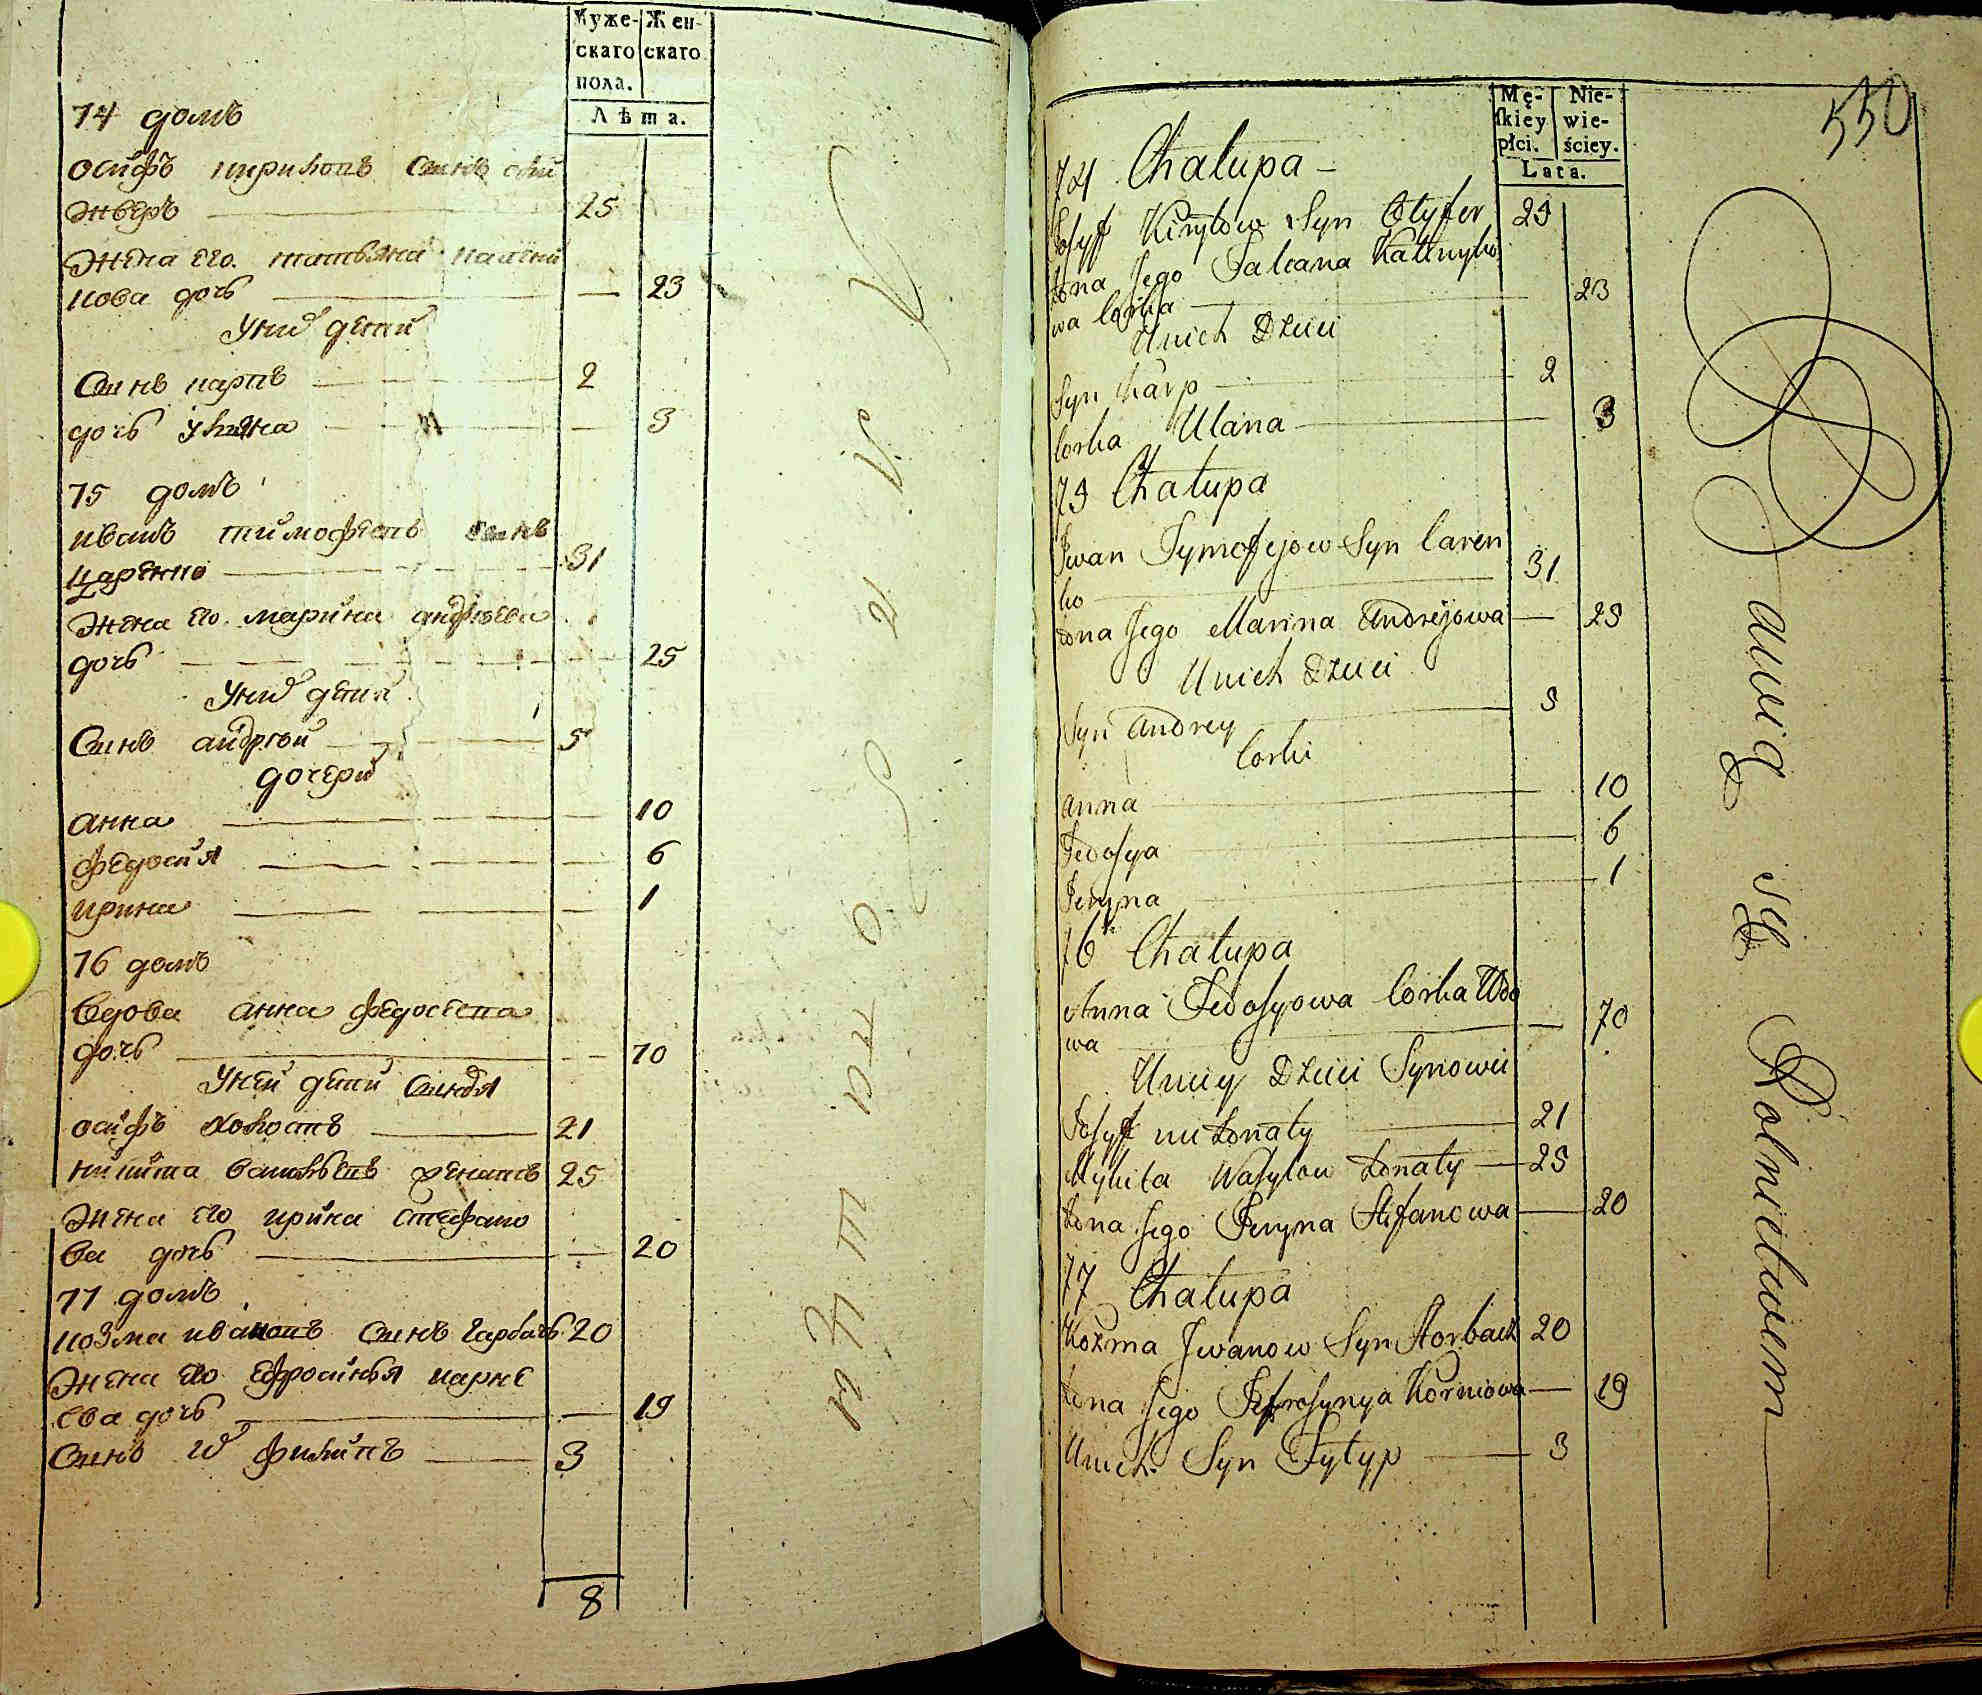 Муже-
скаго
пола.
Жен-
скаго
Лѣта.
74 домъ
осифъ кириловъ синъ оли
ѳверъ 25
жена его. татьяна калени
кова дочь 23
у них дети
Синъ карпъ 2
дочь уляна 3
75 домъ
иванъ тимофеевъ синъ
царенко 31
жена его. марина андреева
дочь 25
у них дети
Синъ андрей 5
дочери
анна 10
федосия 6
ирина 1
76 домъ
вдова анна федосеева
дочь 70
у ней дети синовя
осифъ холостъ 21
никита васильевъ женатъ 25
жена его ирина стефано
ва дочь 20
77 домъ
козма ивановъ синъ гарбачъ 20
жена его ефросинья карне
ева дочь 19
Синъ их филипъ 3
8
Mę-
skiey
płci.
Nie-
wie-
ściey.
Lata.
550
74 Chalupa
Josyff Kiryłow Syn 25
Żona Jego Taleana Kalenyko
wa Corka 23
U nich Dzieci
Syn Karp 2
Corka Ulana 3
75 Chalupa
Jwan Tymofejow Syn Caren
ko 31
Żona Jego Marina Andrejowa 25
U nich Dzieci
Syn Andrey 5
Corki
Anna 10
Fedosya 6
Jeryna 1
76 Chalupa
Anna Fedosyowa Corka Wdo
wa 70
U niey Dzieci Synowie
Josyff nieżonaty 21
Mykita Wasylow żonaty 25
Żona Jego Jeryna Stefanowa 20
77 Chalupa
Kozma Jwanow Syn Horbacz 20
Żona Jego Jefrosynya Korniowa 19
U nich Syn Fylyp 3
awią się Rolnictwem